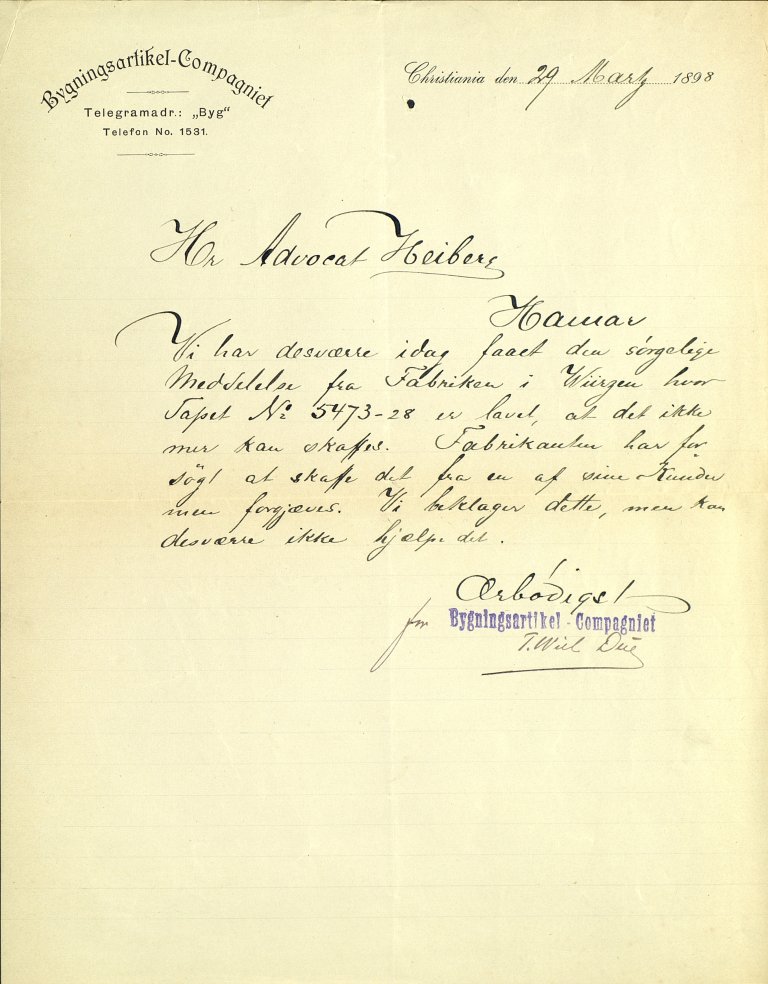 Bygningsartikel-Compagniet
Telegramadr.: „Byg“
Telefon No. 1531.
Christiania den 29 Martz 1898
Hr Advocat Heiberg
Hamar
Vi har desværre idag faaet den sørgelige
Meddelelse fra Fabriken i Würzen hvor
Tapet No 5473-28 er lavet, at det ikke
mer kan skaffes. Fabrikanten har for
søgt at skaffe det fra en af sine Kunder
men forgjæves. Vi beklager dette, men kan
desværre ikke hjælpe det.
Ærbødigst
for Bygningsartikel-Compagniet
T. Wiel Due